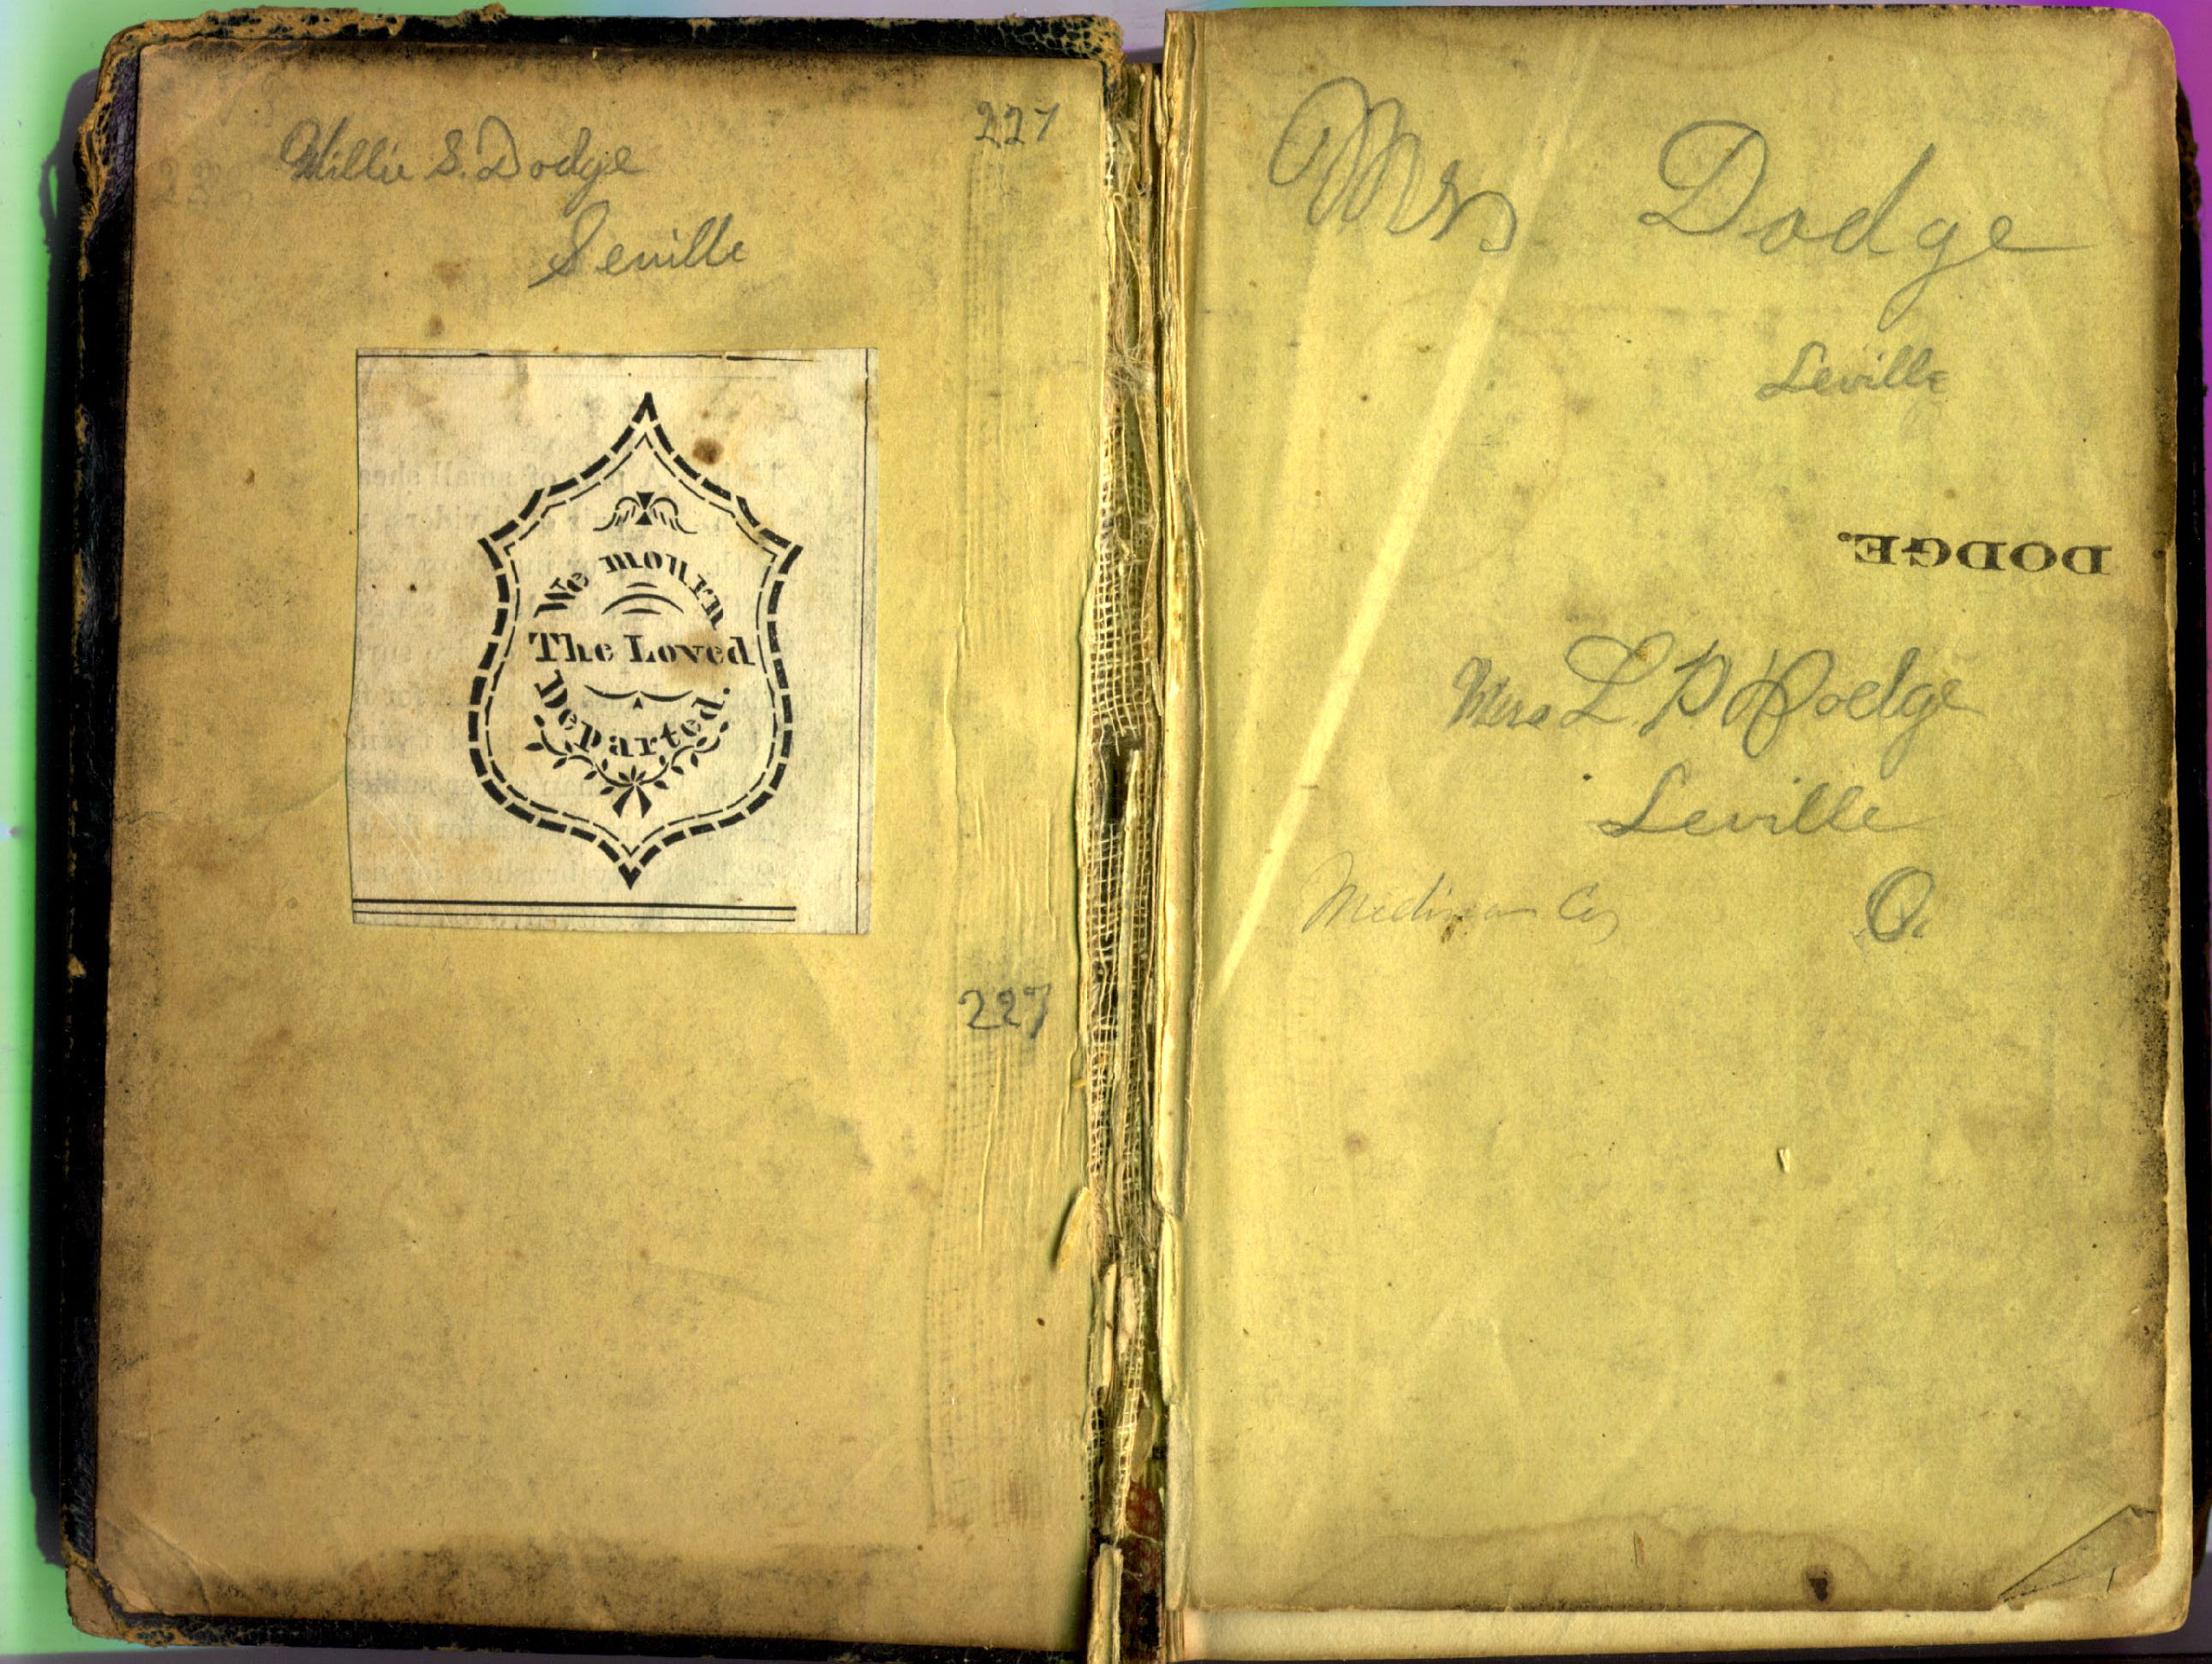 227
Willie S. Dodge
Seville
We mourn
The Loved
Departed.
227
Mrs Dodge
Seville
DODGE.
Mrs L. P. Dodge
Seville
Medina Co, O.